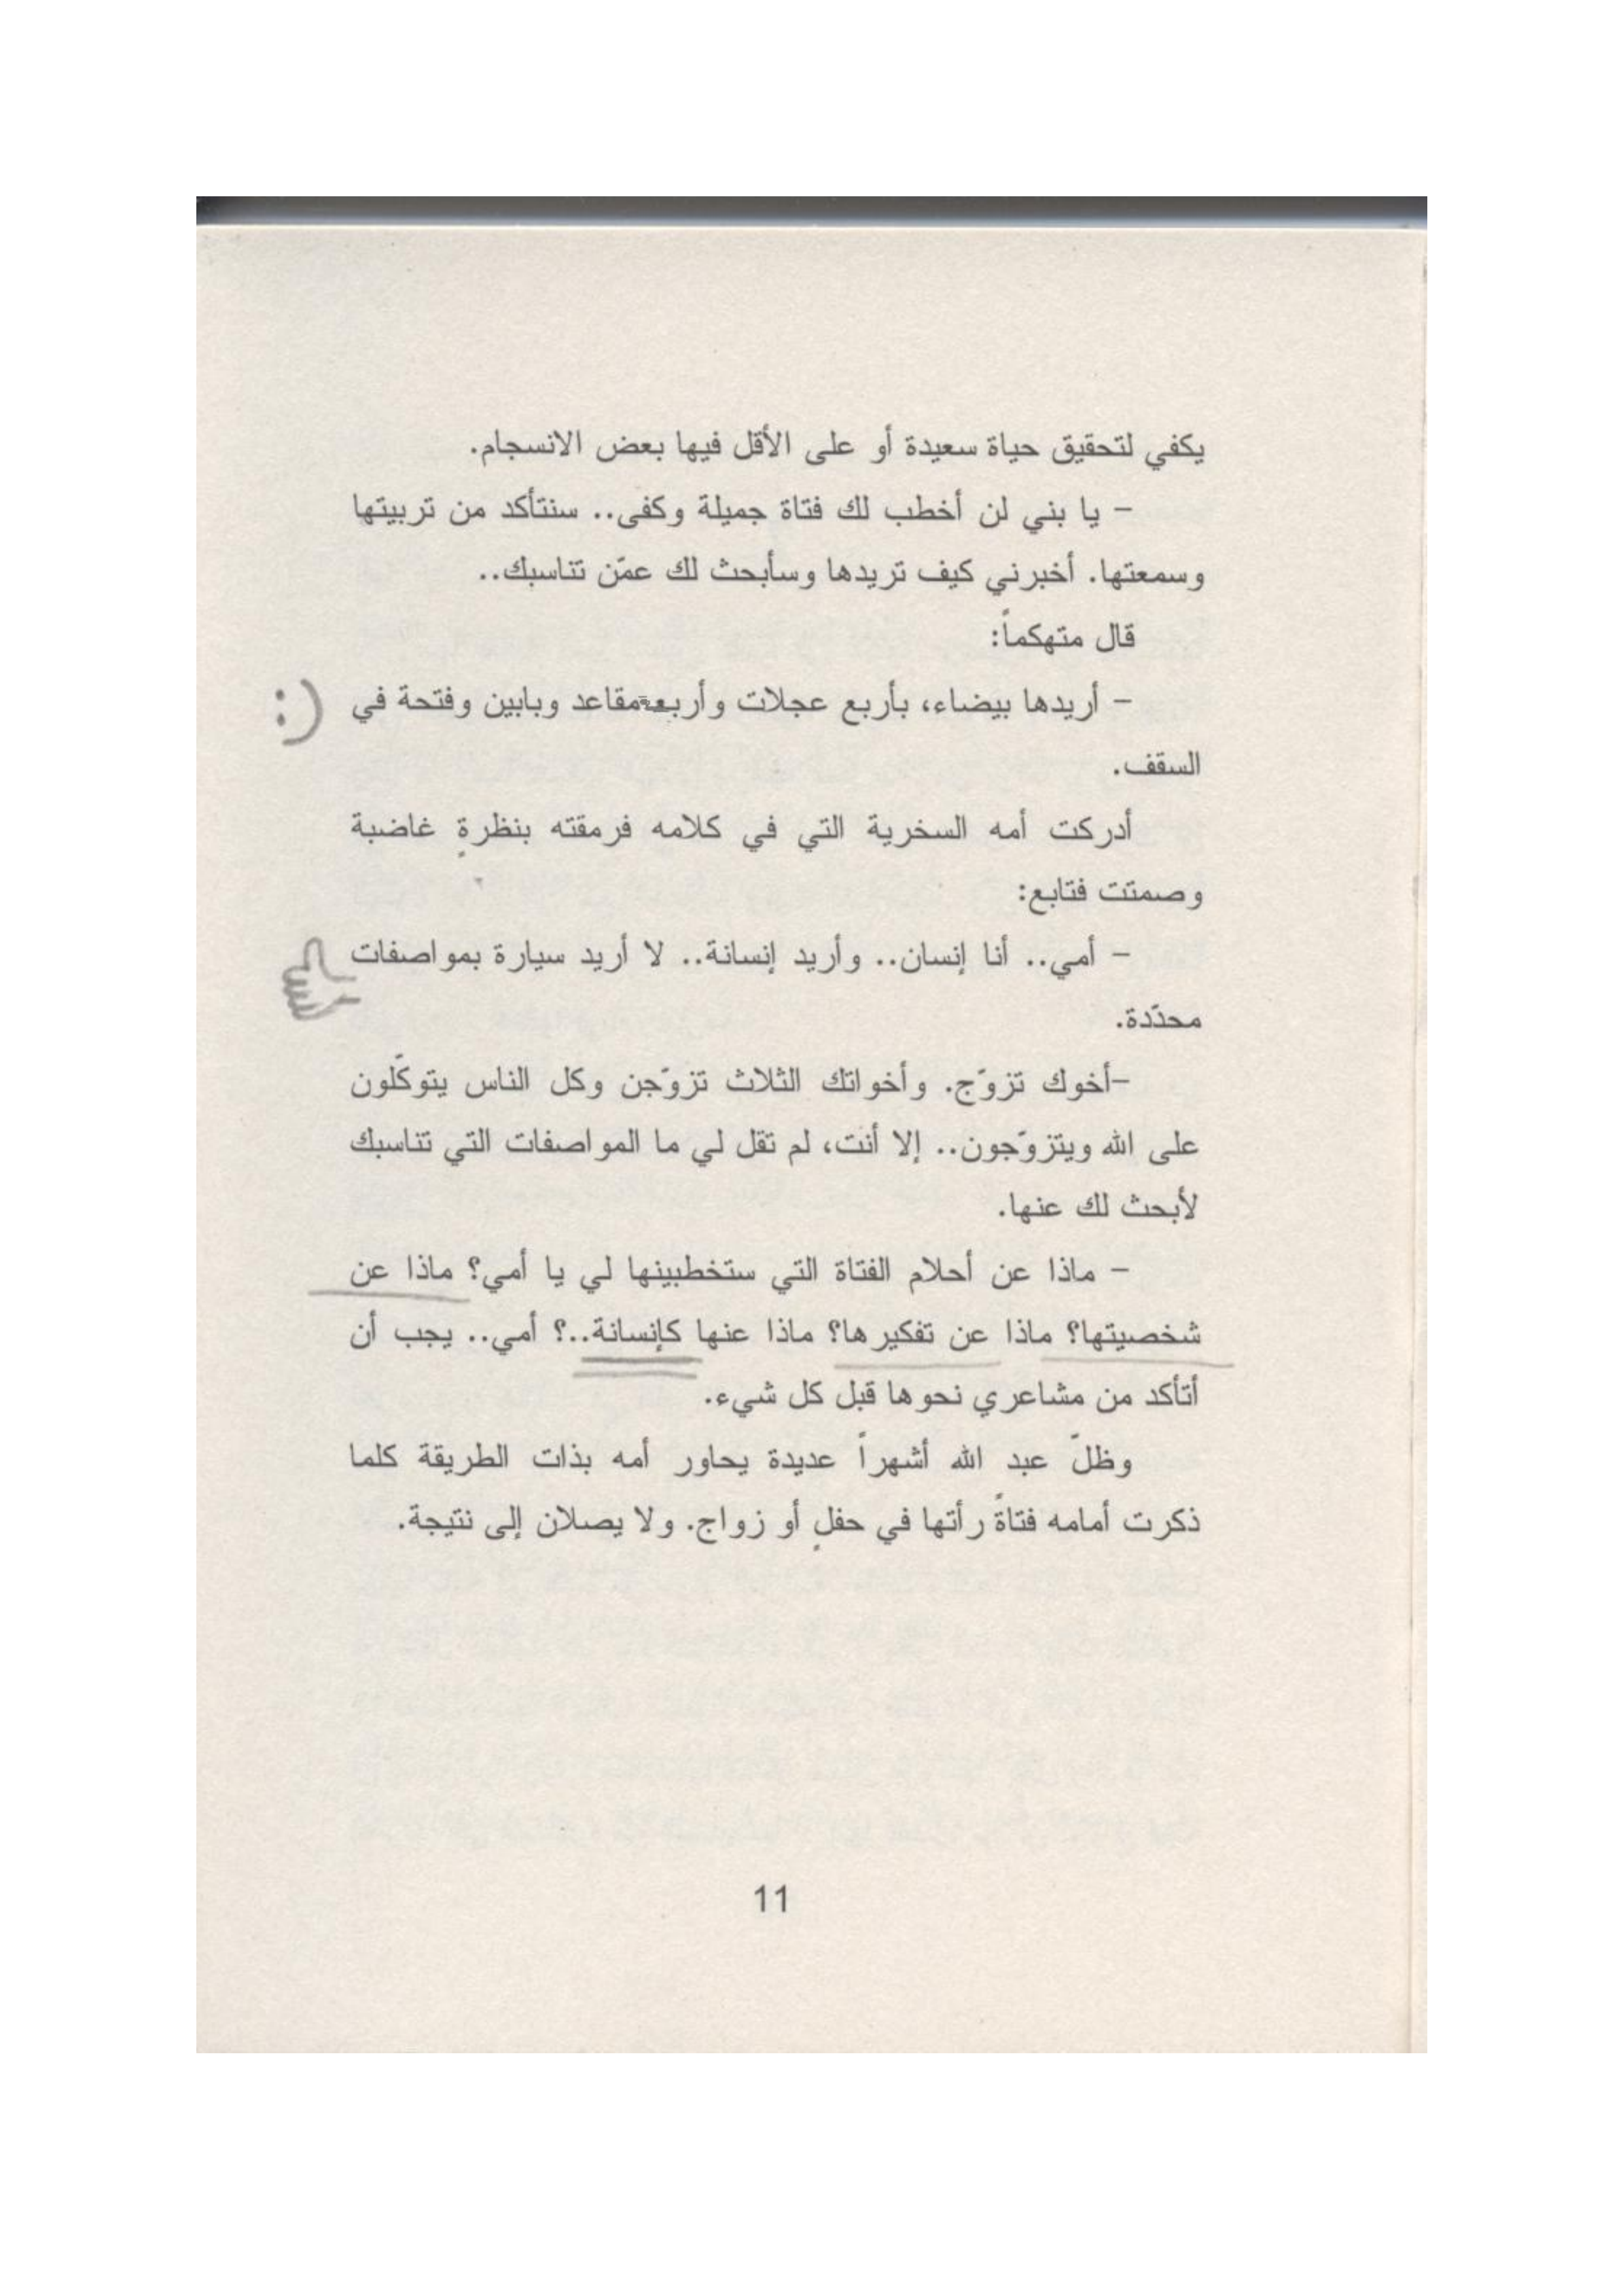 يكفي لتحقيق حياة سعيدة أو على الأقل فيها بعض الانسجام.
- يا بني لن أخطب لك فتاة جميلة وكفى.. سنتأكد من تربيتها
وسمعتها. أخبرني كيف تريدها وسأبحث لك عمّن تناسبك..
قال متهكماً:
- أريدها بيضاء، بأربع عجلات وأربعة مقاعد وبابين وفتحة في
:)
السقف.
أدركت أمه السخرية التي في كلامه فرمقته بنظرةٍ غاضبة
وصمتت فتابع:
- أمي.. أنا إنسان.. وأريد إنسانة.. لا أريد سيارة بمواصفات
محدّدة.
-أخوك تزوّج. وأخواتك الثلاث تزوّجن وكل الناس يتوكّلون
على الله ويتزوّجون.. إلا أنت، لم تقل لي ما المواصفات التي تناسبك
لأبحث لك عنها.
- ماذا عن أحلام الفتاة التي ستخطبينها لي يا أمي؟ ماذا عن
شخصيتها؟ ماذا عن تفكيرها؟ ماذا عنها كإنسانة..؟ أمي.. يجب أن
أتأكد من مشاعري نحوها قبل كل شيء.
وظلّ عبد الله أشهراً عديدة يحاور أمه بذات الطريقة كلما
ذكرت أمامه فتاةً رأتها في حفلٍ أو زواج. ولا يصلان إلى نتيجة.
11